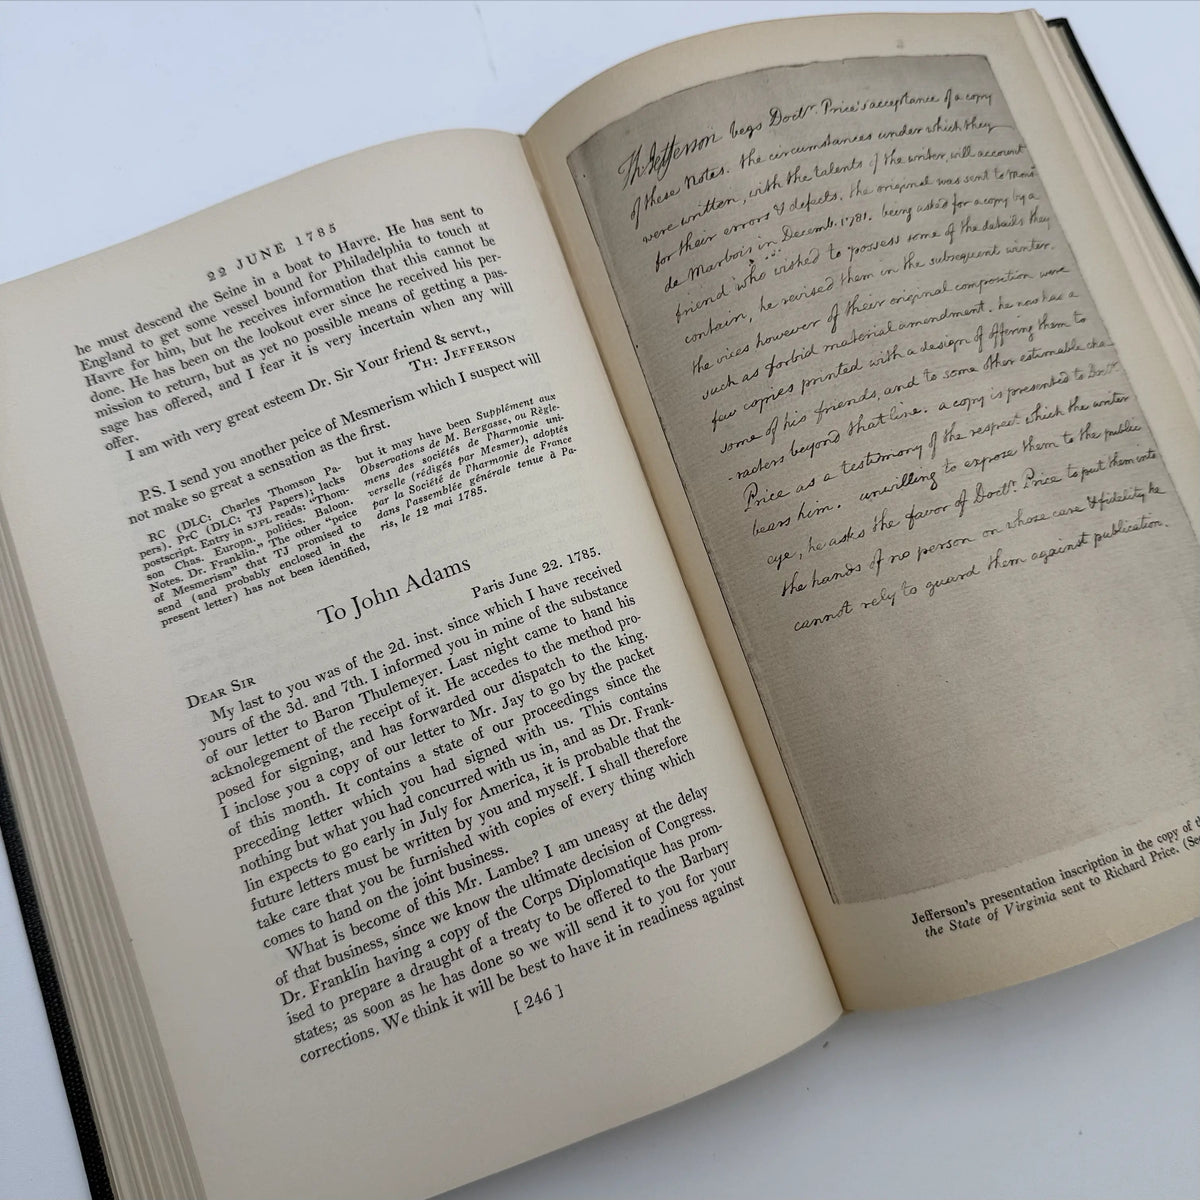 22 JUNE 1785
he must descend the Seine in a boat to Havre. He has sent to
England to get some vessel bound for Philadelphia to touch at
Havre for him, but he receives information that this cannot be
done. He has been on the lookout ever since he received his per-
mission to return, but as yet no possible means of getting a pas-
sage has offered, and I fear it is very incertain when any will
offer.
I am with very great esteem Dr. Sir Your friend & servt.,
TH: JEFFERSON
P.S. I send you another peice of Mesmerism which I suspect will
not make so great a sensation as the first.
RC (DLC: Charles Thomson Pa-
pers). PrC (DLC: TJ Papers); lacks
postscript. Entry in SJPL reads: "Thom-
son Chas. Europn. politics. Baloon.
Notes. Dr. Franklin." The other "peice
of Mesmerism" that TJ promised to
send (and probably enclosed in the
present letter) has not been identified,
but it may have been Supplément aux
Observations de M. Bergasse, ou Règle-
mens des sociétés de l'harmonie uni-
verselle (rédigés par Mesmer), adoptés
par la Société de l'harmonie de France
dans l'assemblée générale tenue à Pa-
ris, le 12 mai 1785.
To John Adams
DEAR SIR
Paris June 22. 1785.
My last to you was of the 2d. inst. since which I have received
yours of the 3d. and 7th. I informed you in mine of the substance
of our letter to Baron Thulemeyer. Last night came to hand his
acknolegement of the receipt of it. He accedes to the method pro-
posed for signing, and has forwarded our dispatch to the king.
I inclose you a copy of our letter to Mr. Jay to go by the packet
of this month. It contains a state of our proceedings since the
preceding letter which you had signed with us. This contains
nothing but what you had concurred with us in, and as Dr. Frank-
lin expects to go early in July for America, it is probable that the
future letters must be written by you and myself. I shall therefore
take care that you be furnished with copies of every thing which
comes to hand on the joint business.
What is become of this Mr. Lambe? I am uneasy at the delay
of that business, since we know the ultimate decision of Congress.
Dr. Franklin having a copy of the Corps Diplomatique has prom-
ised to prepare a draught of a treaty to be offered to the Barbary
states; as soon as he has done so we will send it to you for your
corrections. We think it will be best to have it in readiness against
[ 246 ]
Th. Jefferson begs Doctr. Price's acceptance of a copy
of these Notes. the circumstances under which they
were written, with the talents of the writer, will account
for their errors & defects. the original was sent to Monsr.
de Marbois in Decemb. 1781. being asked for a copy by a
friend who wished to possess some of the details they
contain, he revised them in the subsequent winter.
the vices however of their original composition were
such as forbid material amendment. he now has a
few copies printed with a design of offering them to
some of his friends, and to some other estimable cha-
-racters beyond that line. a copy is presented to Doctr.
Price as a testimony of the respect which the writer
bears him. unwilling to expose them to the public
eye, he asks the favor of Doctr. Price to put them into
the hands of no person on whose care & fidelity he
cannot rely to guard them against publication.
Jefferson's presentation inscription in the copy of
the State of Virginia sent to Richard Price. (See